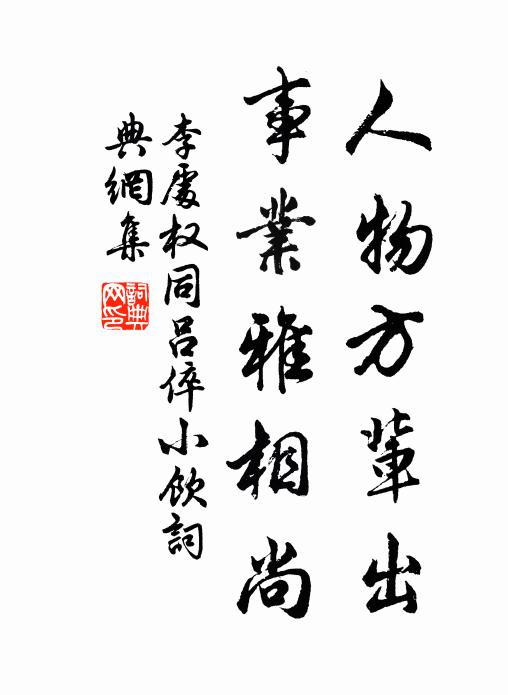 人物方軰出
事業雅相尚
李處权同吕倅小飲詞
典網集
詞典网印